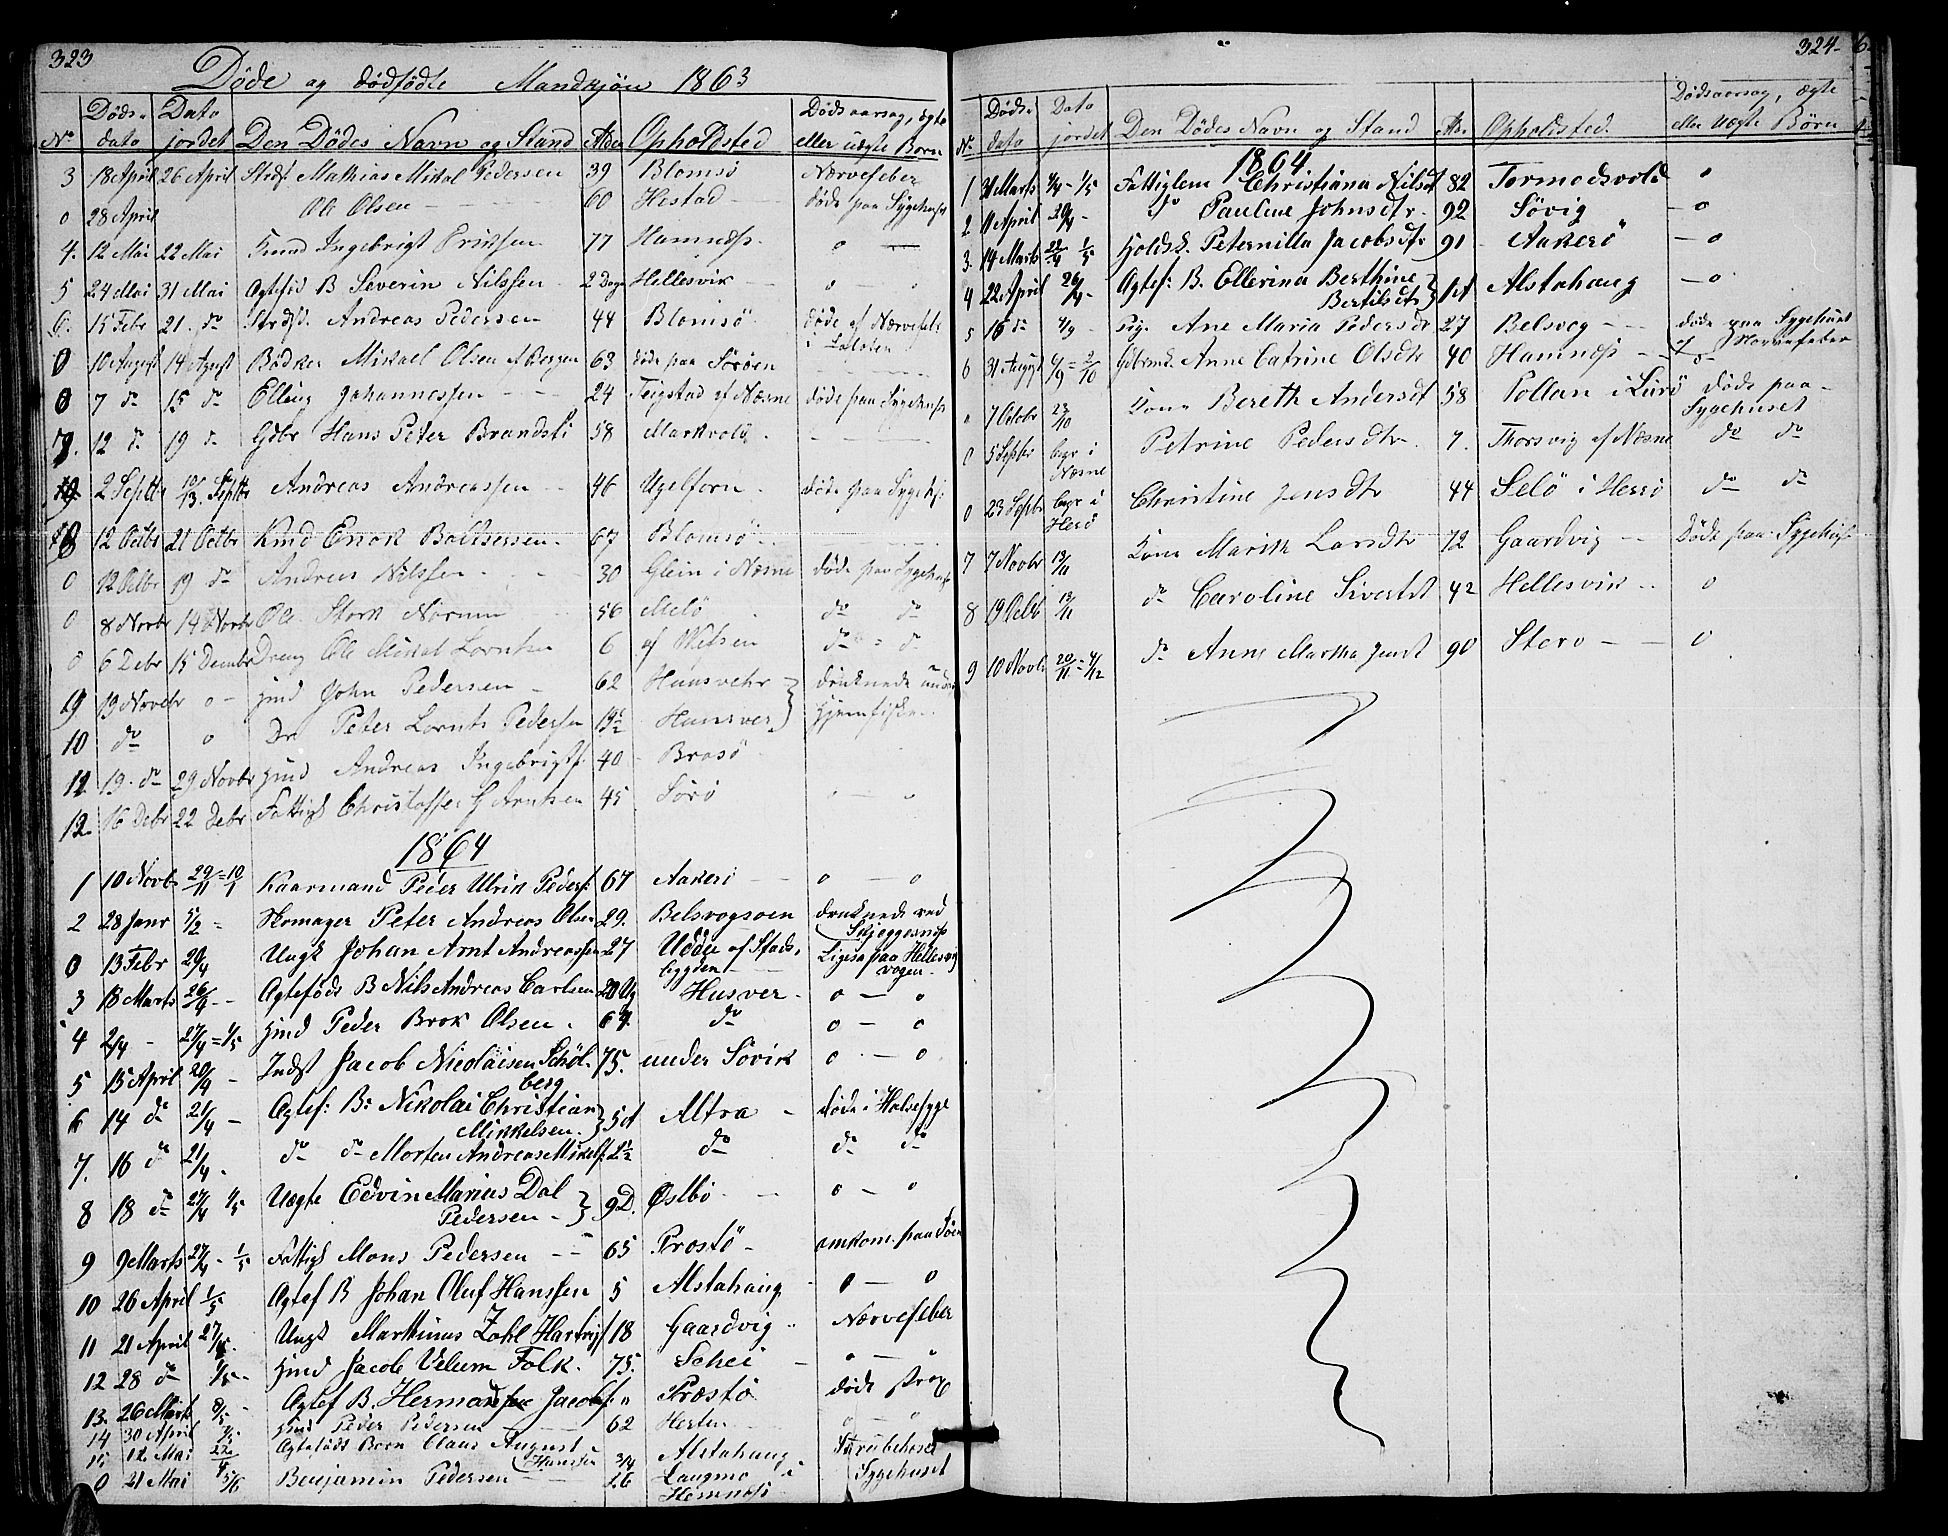 323
Døde og dødfødte Mandkjøn 1863
No Døds-dato Dato jordet Den Dødes Navn og Stand Alder Opholdsted Dødsaarsag, ægte eller uægte Børn
3 18 April 26 April Mathias Mikal Pedersen 39 Blomsö Nervefeber
0 28 April Ole Olsen 60 Hestad døde paa Sygehuset
4. 12 Mai 22 Mai Ingebrigt Eriksen 77 Hamnæs o
5 24 Mai 31 Mai Ægtefød B Severin Nilssen 2 Dage Hellesvik o o
6. 15 Febr 21. do Andreas Pedersen 44 Blomsö døde af Nervefeb i Lofoten
0 10 August 14 August Bødker Mikael Olsen af Bergen 63 døde paa Söröen
0 7 do 15 do Elling Johannessen 24 Teigstad af Næsne døde paa Sygehuset
7. 12 d. 19 do Gdbr Hans Peter Brandsti 58 Markvold
2 Septbr 13. Septbr Andreas Andreassen 46 Ugelforn døde paa Sygehs
8 12 Octbr 21 Octbr Kmd Enok Baltsersen 67 Blomsö
0 12 Octbr 19 do Andreas Nilssen 30 Glein i Næsne døde paa Sygehuset
0 8 Novbr 14 Novbr Ole Stork Normen 56 Melö do do
0 6 Debr 15 Decmbr Dreng Ole Mikal Lorntsen 6 af Vefsen do = d.
9 13 Novebr o Hmd John Pedersen 62 Huusvehr } druknede under
10 do o Dr Peter Lornts Pedersen 13½ Huusver } Hjemfisken
11. 19. do 29 Novbr Hmd Andreas Ingebrigts. 40 Brasö
12. 16 Debr 22 Debr Fattigl Christoffer G Arntsen 45 Sörö
1864
1 10 Novbr 29/11=10/1 Kaarmand Peder Ulrik Peders: 67 Akerö o o
2 28 Janr 5/2 = Skomager Peter Andreas Olsen 29. Belsvogsoen druknede ved Skjeggesnæs
0 13 Febr 29/4 Ungk Johan Arnt Andreassen 27 Uddu af Stadsbygden Ligesa paa Hellesvigvogen
3 18 Marts 26/4 Ægteføde B Nils Andreas Carlsen 20 Ug Husver o o
4 2/4 27/4=1/5 Hmd Peder Brok Olsen 67. do o o
5 15 April 20/4 Indst Jacob Nicolaisen Schölberg 75. under Sövik o o
6 14 do 21/4 Ægtef: B: Nikolai Christian Mikkelsen. } 5 A Altra døde i Halsesyge
7. 16 d 21/4 do do Morten Andreas Mikelss. 2½ do do do
8 18 do 27/4 1/5 Uægte Edvin Marius Dal Pedersen } 9 D. Østbö o o
9 9 Marts 27/4 - 1/5 Fattigl Mons Pedersen 65 Prostö omkom. paa Söen
10 26 April 1/5 Ægtef B Johan Oluf Hanssen 5 Alstahaug o o
11 21 April 27/4 Ungk Martinus Zahl Hartvigs 18 Gaardvig Nervefeber
12 28 do 1/5 Hmd Jacob Velum Falk. 75. Schei
13. 26 Marts 8/5 Ægtef B. Herman Jacobs. " Præstö døde strax
14 30 April Hmd Peder Pedersen 62 Herten
15 12 Mai 22 Ægtefødt Barn Claus August Hanssen 3/4 Alstahaug Strubehoste
0 21 Mai 5/6 Benjamin Pedersen 26 Langmo i Hemnæs Sygehuset
324
No Døds-dato Dato jordet Den Dødes Navn og Stand Alder Opholdsted. Dødsaarsag, ægte eller Uægte Børn
1864
1 31 Marts 4/4 - 1/5 Fattiglem Christiana Nilsdt 82 Tormodsvold o
2 11 April 20/4 - do Pauline Johnsdtr. 92 Sövig o
3. 14 Marts 24/4 1/5 Holdsk. Peternilla Jacobsdtr 91 Aakerö o
4 22 April 26/4 - Ægtef: B. Ellerina Berthine Bertilsdtr } 1 A Alstahaug o
5 15 do 4/9 Pig. Ane Maria Pedersdtr 27 Belsvog døde paa Sygehuset
6 31 August 4/9 = 2/10 Anne Catrine Olsdtr 40 Hamnæs af Nervefeber
" 7 Octobr 23/10 Kone Bereth Andersdt 58 Pollan i Lurö døde paa Sygehuset
0 5 Septbr begr i Næsne Petrine Pedersdtr. 7. Thorsvig af Næsne do do
0 23 Septbr begr i Herö Christine Jensdtr 44 Selö i Herrö do d
7 7 Novbr 13/11 Kone Marith Larsdtr 72 Gaardvig Døde paa Sygehuset
8 19 Octb 13/11 do Caroline Sivertdt 42 Hellesvik o
9 10 Novbr 20/11 = 4/12 do Anne Martha Jensdt 90 Storo o